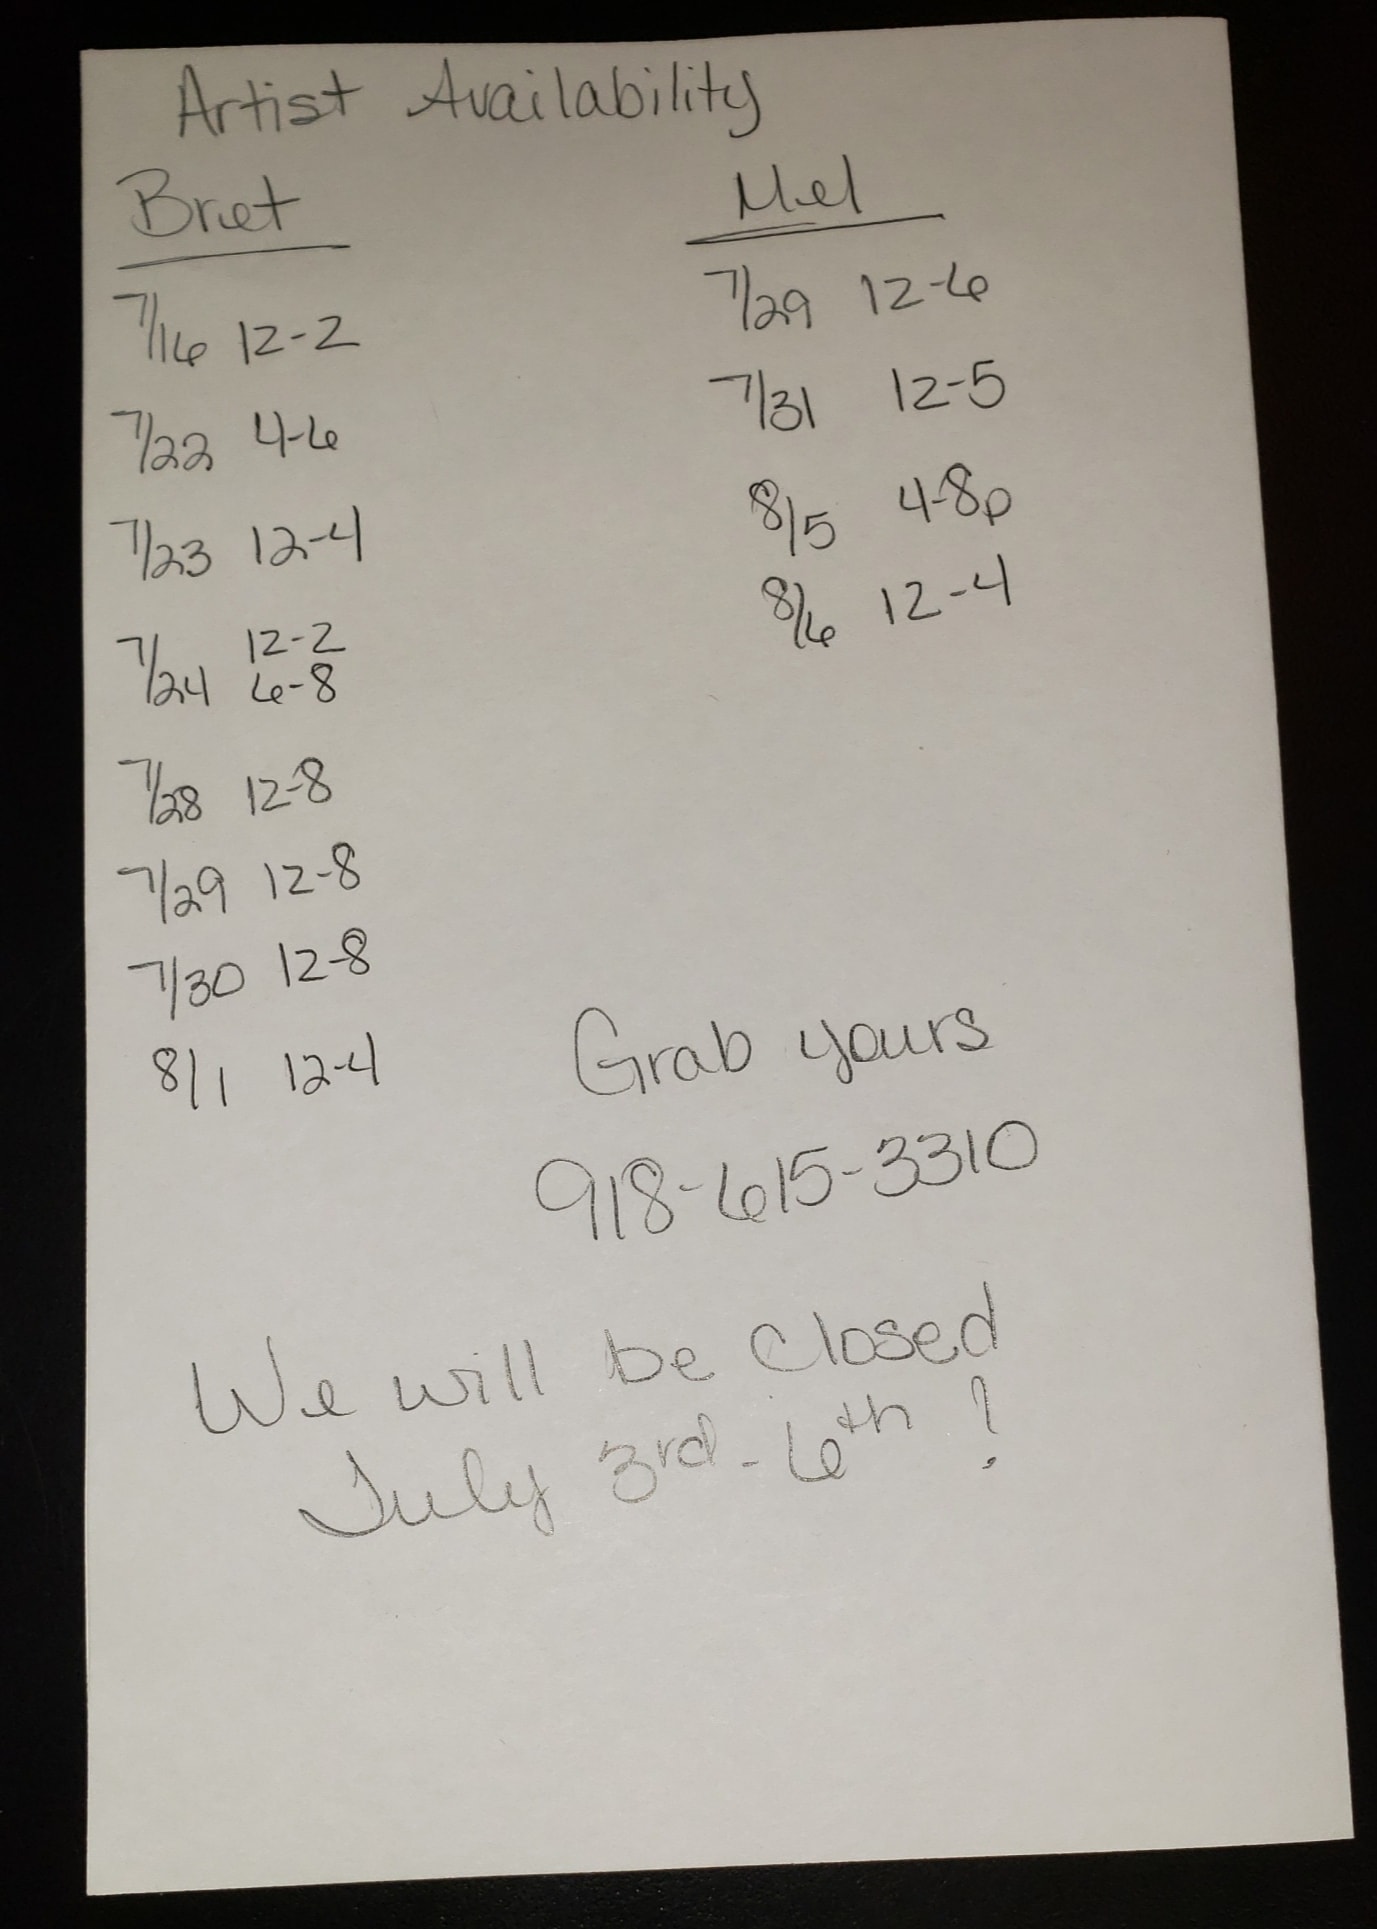 Artist Availability
Bret
7/16 12-2
7/22 4-6
7/23 12-4
7/24 12-2
6-8
7/28 12-8
7/29 12-8
7/30 12-8
8/1 12-4
Mel
7/29 12-6
7/31 12-5
8/5 4-8p
8/6 12-4
Grab yours
918-615-3310
We will be closed
July 3rd - 6th !